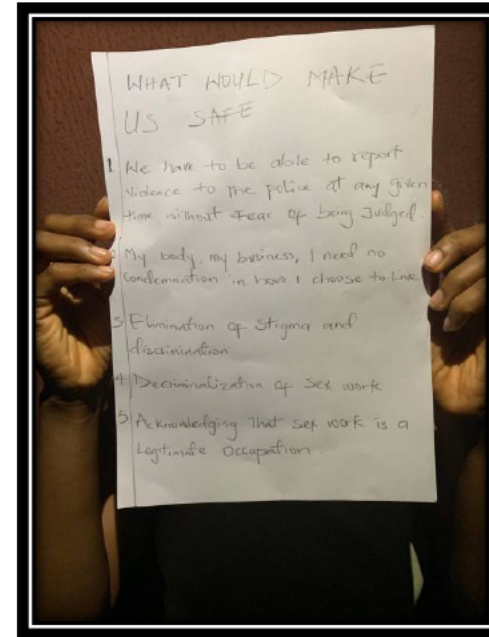 WHAT WOULD MAKE
US SAFE
1 We have to be able to report
violence to the police at any given
time without Fear of being Judged.
My body, my business, I need no
Condemnation in how I choose to Live
3 Elimination of Stigma and
discrimination
4 Decriminalization of Sex work
5 Acknowledging That sex work is a
Legitimate Occupation.